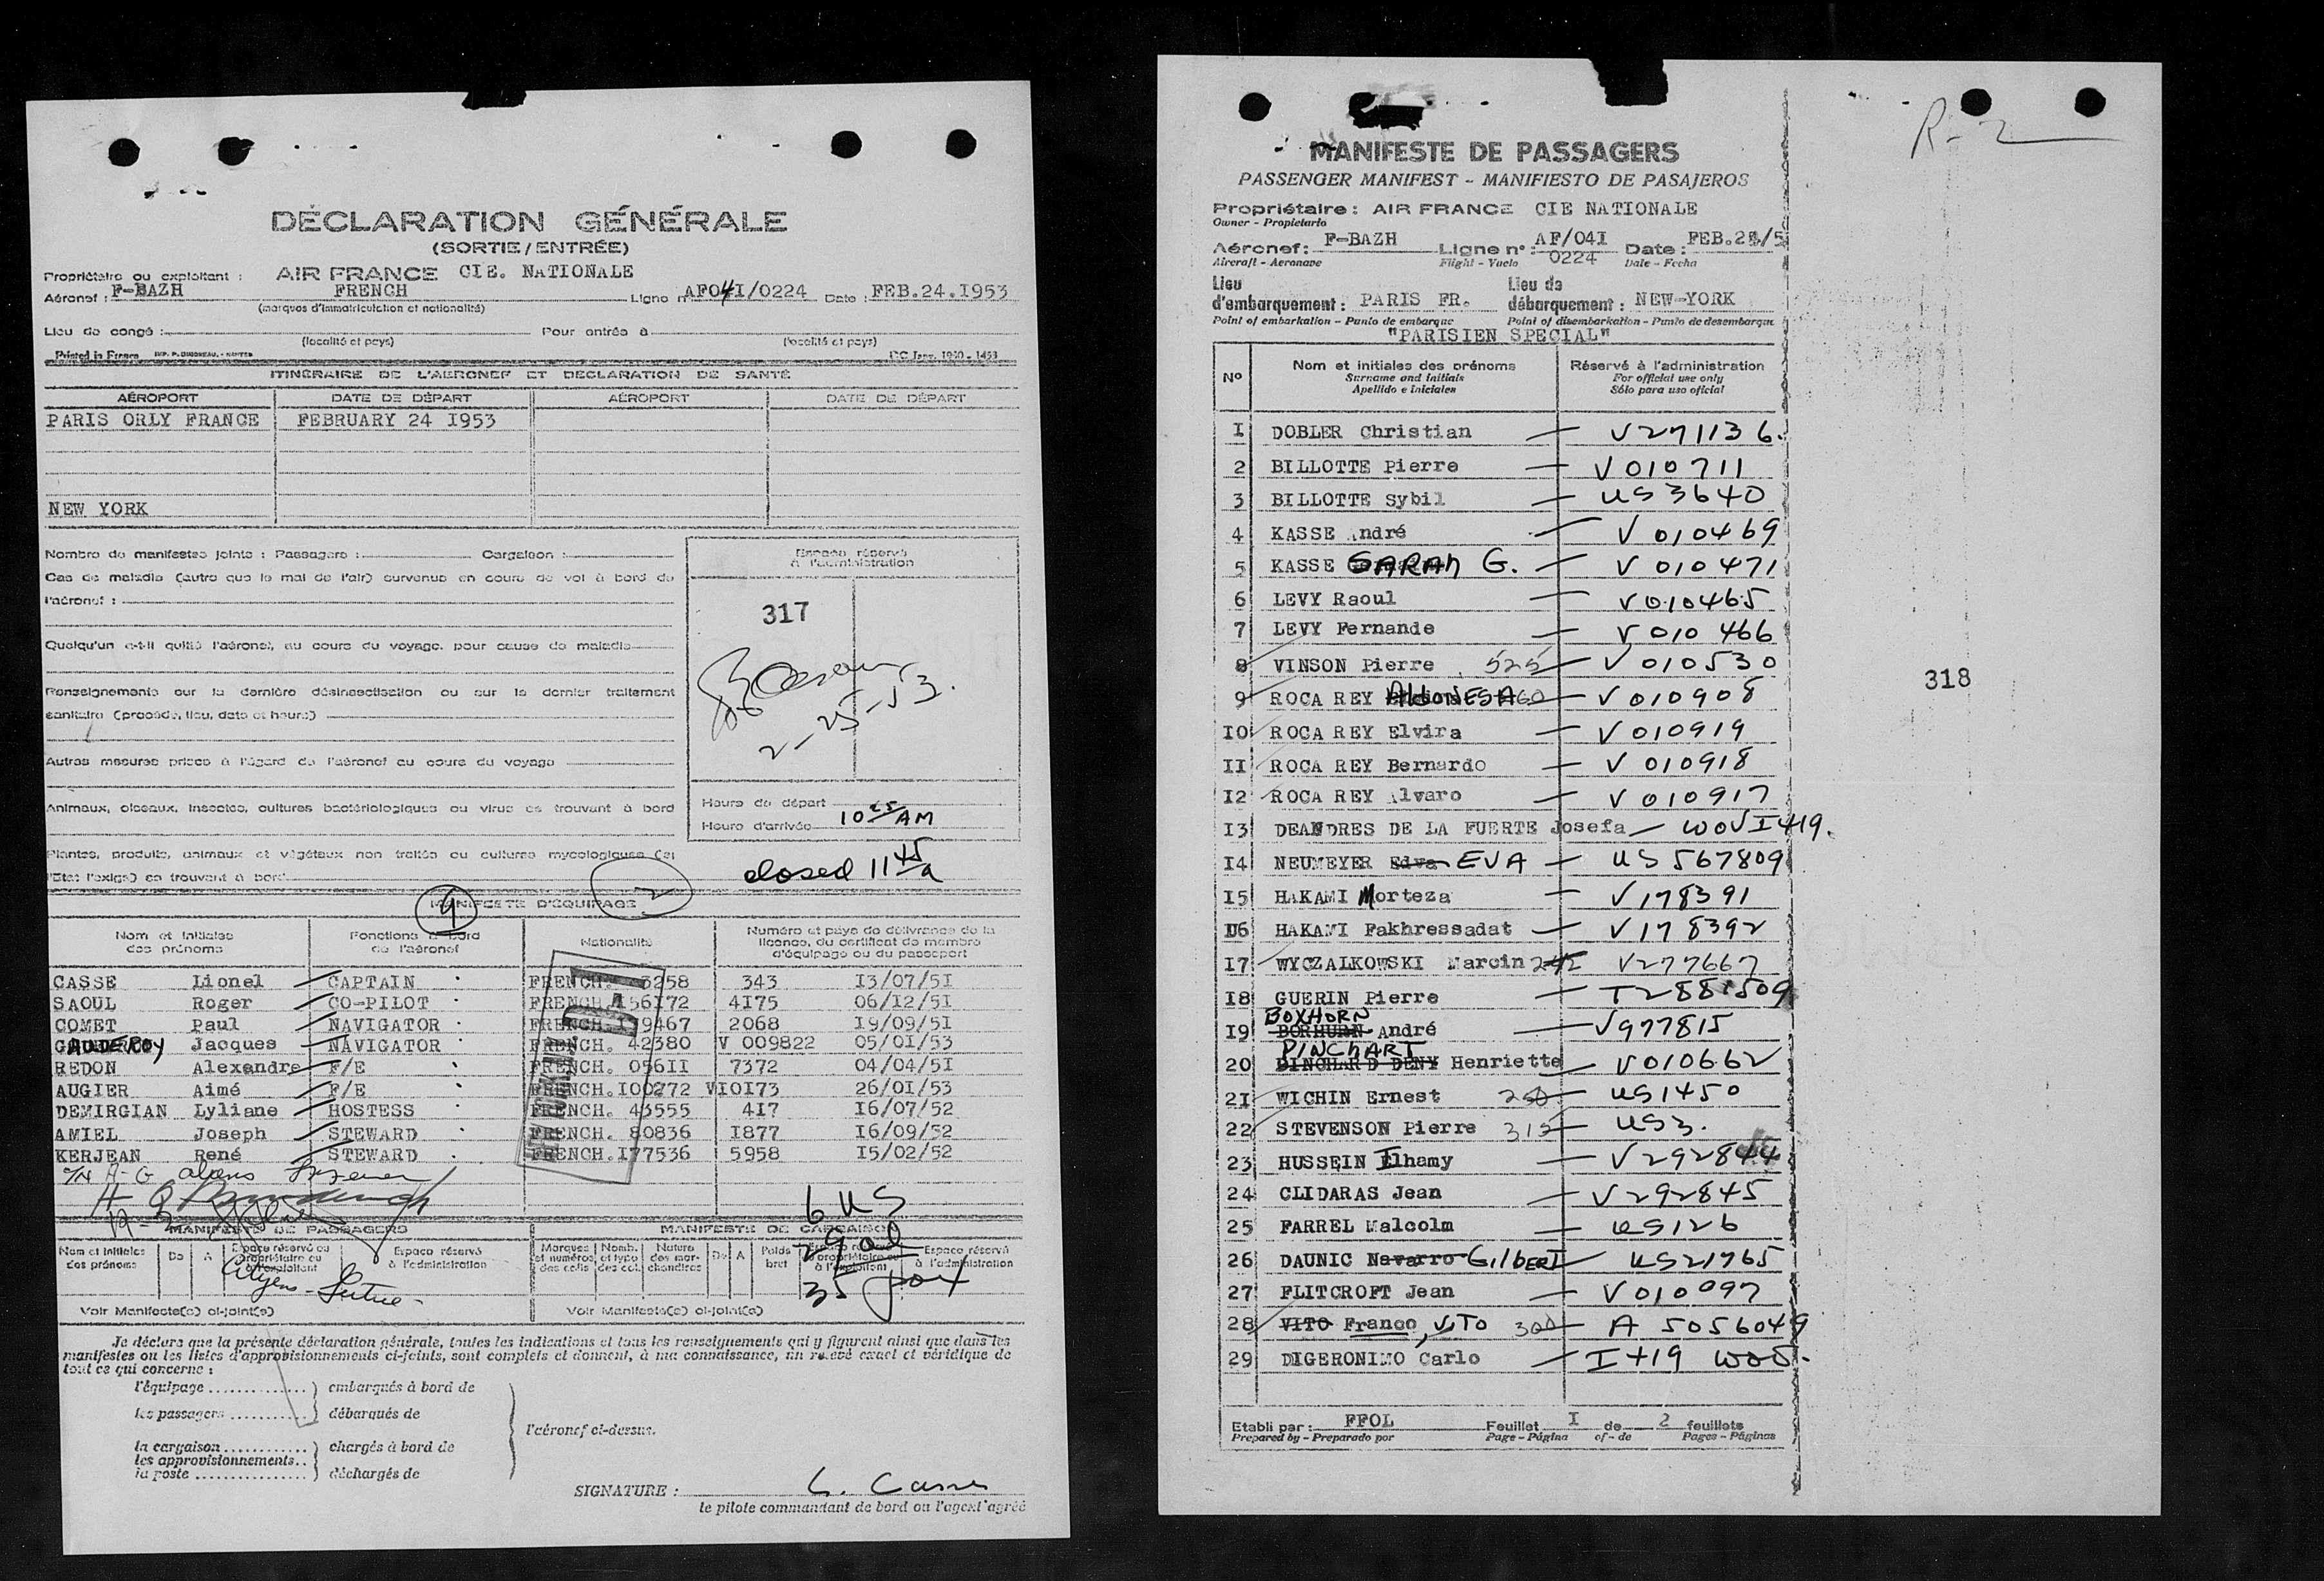 DÉCLARATION GÉNÉRALE
(SORTIE/ENTRÉE)
Propriétaire ou exploitant : AIR FRANCE CIE. NATIONALE
Aéronef : F-BAZH FRENCH Ligne n° AF041/0224 Date : FEB.24.I953
(marques d'immatriculation et nationalité)
Lieu de congé : Pour entrée à
(localité et pays) (localité et pays)
Printed in France
ITINÉRAIRE DE L'AÉRONEF ET DÉCLARATION DE SANTÉ
AÉROPORT DATE DE DÉPART AÉROPORT DATE DE DÉPART
PARIS ORLY FRANCE FEBRUARY 24 I953
NEW YORK
Nombre de manifestes joints : Passagers : Cargaison :
Cas de maladie (autre que le mal de l'air) survenus en cours de vol à bord de
l'aéronef :
Quelqu'un a-t-il quitté l'aéronef, au cours du voyage, pour cause de maladie
Renseignements sur la dernière désinsectisation ou sur le dernier traitement
sanitaire (procédé, lieu, date et heure)
Autres mesures prises à l'égard de l'aéronef au cours du voyage
Animaux, oiseaux, insectes, cultures bactériologiques ou virus se trouvant à bord
Plantes, produits, animaux et végétaux non traités ou cultures mycologiques (si
l'Etat l'exige) se trouvant à bord
Espace réservé
à l'administration
317
2-25-53.
Heure de départ
Heure d'arrivée 10 25 AM
closed 11 45 a
9 2
MANIFESTE D'ÉQUIPAGE
Nom et initiales des prénoms
Fonctions à bord de l'aéronef
Nationalité
Numéro et pays de délivrance de la licence, du certificat de membre d'équipage ou du passeport
CASSE Lionel CAPTAIN FRENCH. 3258 343 I3/07/5I
SAOUL Roger CO-PILOT FRENCH I56I72 4I75 06/I2/5I
COMET Paul NAVIGATOR FRENCH. 9467 2068 I9/09/5I
AUDEROY Jacques NAVIGATOR FRENCH. 42380 V 009822 05/0I/53
REDON Alexandre F/E FRENCH. 056II 7372 04/04/5I
AUGIER Aimé F/E FRENCH.I00272 VI0I73 26/0I/53
DEMIRGIAN Lyliane HOSTESS FRENCH. 43555 4I7 I6/07/52
AMIEL Joseph STEWARD FRENCH. 80836 I877 I6/09/52
KERJEAN René STEWARD FRENCH.I77536 5958 I5/02/52
6 US
35 pax
MANIFESTE DE PASSAGERS MANIFESTE DE CARGAISON
Nom et initiales des prénoms De A Espace réservé au propriétaire ou à l'exploitant Espace réservé à l'administration
Marques et numéros des colis Nomb. et type des col. Nature des marchandises De A Poids brut Espace réservé à l'administration
Voir Manifeste(s) ci-joint(s) Voir Manifeste(s) ci-joint(s)
Je déclare que la présente déclaration générale, toutes les indications et tous les renseignements qui y figurent ainsi que dans les
manifestes ou les listes d'approvisionnements ci-joints, sont complets et donnent, à ma connaissance, un relevé exact et véridique de
tout ce qui concerne :
l'équipage embarqués à bord de
les passagers débarqués de
l'aéronef ci-dessus.
la cargaison chargés à bord de
les approvisionnements
la poste déchargés de
SIGNATURE : L. Casse
le pilote commandant de bord ou l'agent agréé
R-2
MANIFESTE DE PASSAGERS
PASSENGER MANIFEST - MANIFIESTO DE PASAJEROS
Propriétaire : AIR FRANCE CIE NATIONALE
Owner - Propietario
Aéronef : F-BAZH Ligne n° : AF/04I 0224 Date : FEB.24/5
Aircraft - Aeronave Flight - Vuelo Date - Fecha
Lieu d'embarquement : PARIS FR. Lieu de débarquement : NEW-YORK
Point of embarkation - Punto de embarque Point of disembarkation - Punto de desembarque
"PARISIEN SPECIAL"
N° Nom et initiales des prénoms Réservé à l'administration
Surname and initials For official use only
Apellido e iniciales Sólo para uso oficial
I DOBLER Christian — V271136.
2 BILLOTTE Pierre — V010711
3 BILLOTTE Sybil — US3640
4 KASSE André — V010469
5 KASSE SARAH G. — V010471
6 LEVY Raoul — V010465
7 LEVY Fernande — V010466
8 VINSON Pierre 525 — V010530
9 ROCA REY — V010908
IO ROCA REY Elvira — V010919
II ROCA REY Bernardo — V010918
I2 ROCA REY Alvaro — V010917
I3 DEANDRES DE LA FUERTE Josefa — WOV I419.
I4 NEUMEYER Edva EVA — US567809
I5 HAKAMI Morteza — V178391
I6 HAKAMI Fakhressadat — V178392
I7 WYCZALKOWSKI Marcin 242 V277667
I8 GUERIN Pierre — T2881509
BOXHORN
I9 BORHURN André — V977815
PINCHART
20 PINCHARD DENY Henriette — V010662
2I WICHIN Ernest — US1450
22 STEVENSON Pierre 315 — US3.
23 HUSSEIN Elhamy — V292844
24 CLIDARAS Jean — V292845
25 FARREL Malcolm — US126
26 DAUNIC Navarro GilbERT — US21765
27 FLITCROFT Jean — V010097
28 VITO Franco, VITO 300 — A 5056049
29 DIGERONIMO Carlo — I419 WOV.
Etabli par : FFOL Feuillet I de 2 feuillets
Prepared by - Preparado por Page - Página of - de Pages - Páginas
318